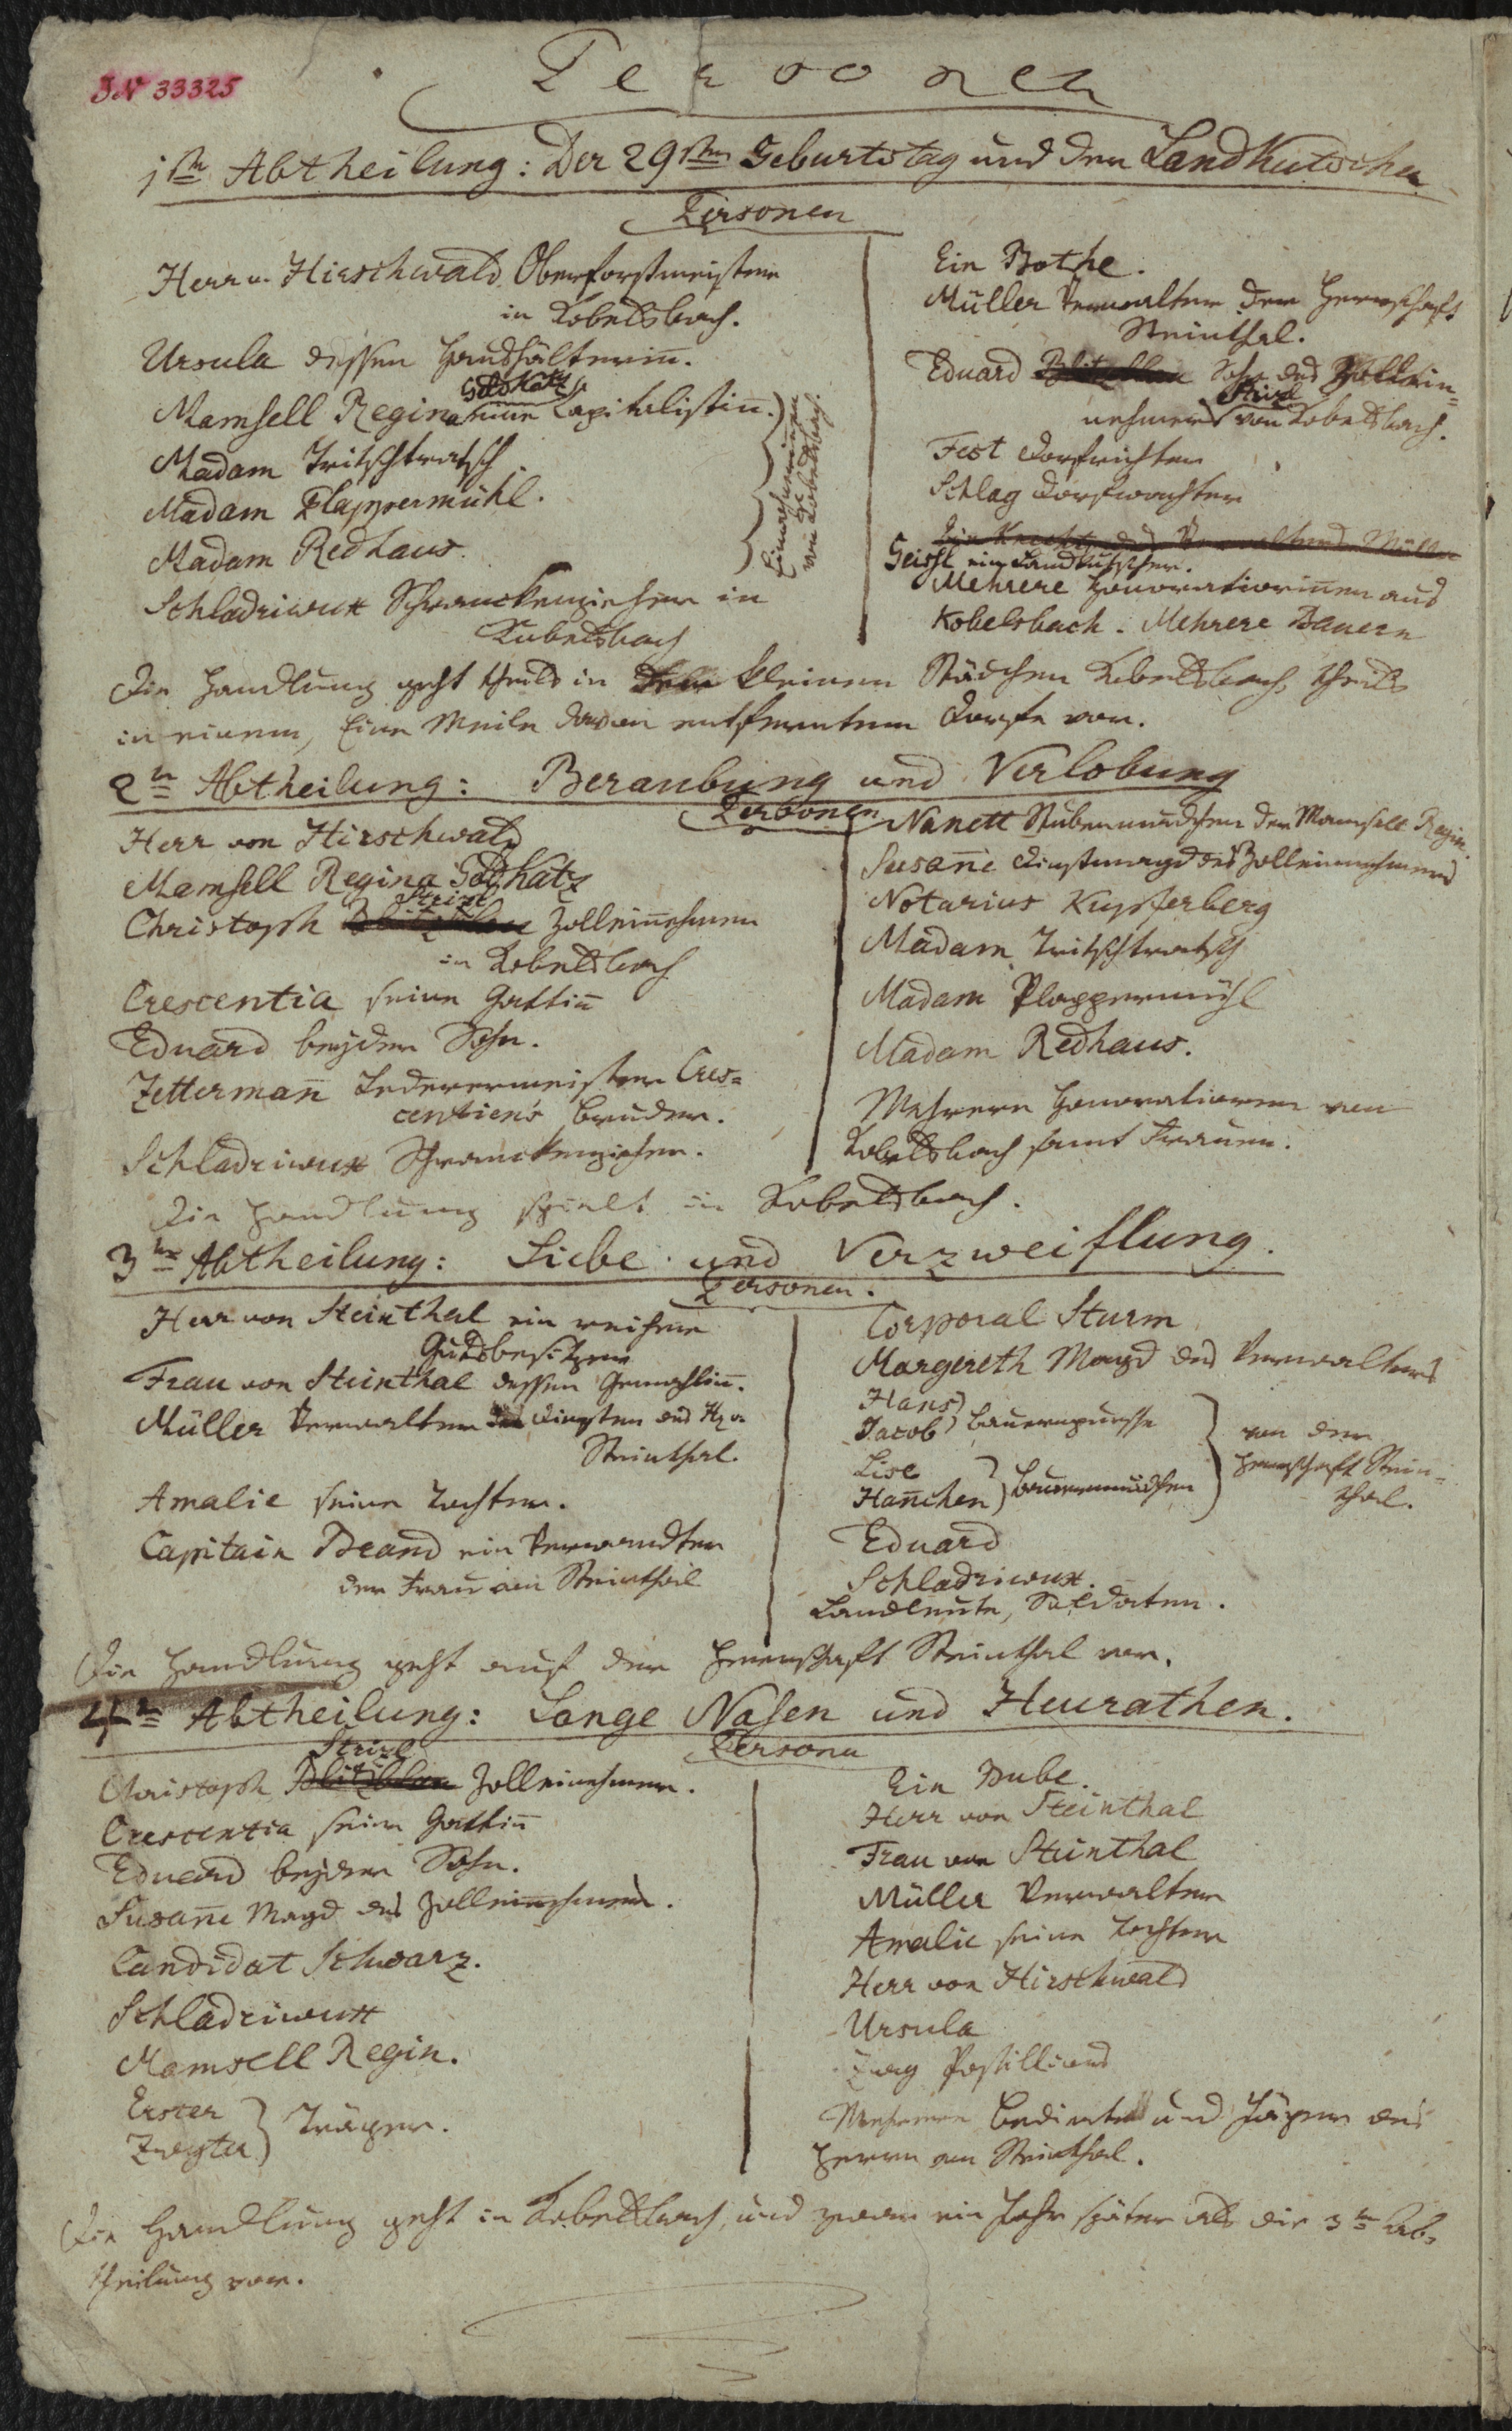 JN 33325
Personen
1te Abtheilung: Der 29ste Geburtstag und der Landkutscher
Personen
Herr v. Hirschwald Oberforstmeister
in Kobelsbach.
Ursula dessen Haushälterin̄.
Goldkatz
Mamsell Regina eine Capitalistin̄.
Madam Tritschtratsch.
Madam Plappermühl.
Madam Redhaus.
Einwohnerinnen
von Kobelsbach.
Schladriwux Schrankenzieher in
Kobelsbach
Ein Bothe.
Müller Verwalter der Herrschaft
Steinthal.
Eduard Sohn des Zollein=
Strizl
nehmers von Kobelsbach.
Fest Dorfrichter
Schlag Dorfwächter
Ein Knecht des Verwalters Müller
Geissl ein Landkutscher.
Mehrere Honoratiorinen aus
Kobelsbach. Mehrere Bauern
Die Handlung geht theils in kleinen Städchen Kobelsbach, theils
in einem, Eine Meile davon entferntem Dorfe vor.
2te Abtheilung: Beraubung und Verlobung
Personen
Herr von Hirschwald
Mamsell Regina Goldkatz
Strizl
Christoph Zollein̄ehmer
in Kobelsbach
Crescentia seine Gattin̄
Eduard beyder Sohn.
Zetterman̄ Lederermeister Cres=
centien's Bruder.
Schladriwux Schrankenzieher.
Nanett Stubenmädchen der Mamsell Regin.
Susan̄e Dienstmagd des Zolleinnehmers
Notarius Kupferberg
Madam Tritschtratsch
Madam Plappermühl
Madam Redhaus.
Mehrere Honoratioren von
Kobelsbach samt Frauen.
Die Handlung spielt in Kobelsbach.
3te Abtheilung: Liebe und Verzweiflung.
Personen.
Herr von Steinthal ein reicher
Gutsbesitzer
Frau von Steinthal dessen Gemahlin̄.
Müller Verwalter in Diensten des H. v.
Steinthal.
Amalie seine Tochter.
Capitain Brand ein Verwandter
der Frau von Steinthal
Corporal Sturm
Margereth Magd des Verwalters
Hans
Jacob Bauernpursche
Lise
Han̄chen Bauernmädchen
von der
Herrschaft Stein=
thal.
Eduard
Schladriwux.
Landleute, Soldaten.
Die Handlung geht auf der Herrschaft Steinthal vor.
4te Abtheilung: Lange Nasen und Heurathen.
Personen
Strizl
Christoph Blitzblau Zolleinehmer.
Crescentia seine Gattin̄
Eduard beyder Sohn.
Susan̄e Magd des Zolleinnehmers.
Candidat Schwarz.
Schladriwux
Mamsell Regin.
Erster
Zweyter Träger.
Ein Bube.
Herr von Steinthal
Frau von Steinthal
Müller Verwalter
Amalie seine Tochter
Herr von Hirschwald
Ursula
Zwey Postillions
Mehrere Bediente und Jäger des
Herrn von Steinthal.
Die Handlung geht in Kobelsbach, und zwar ein Jahr später als die 3te Ab=
theilung vor.